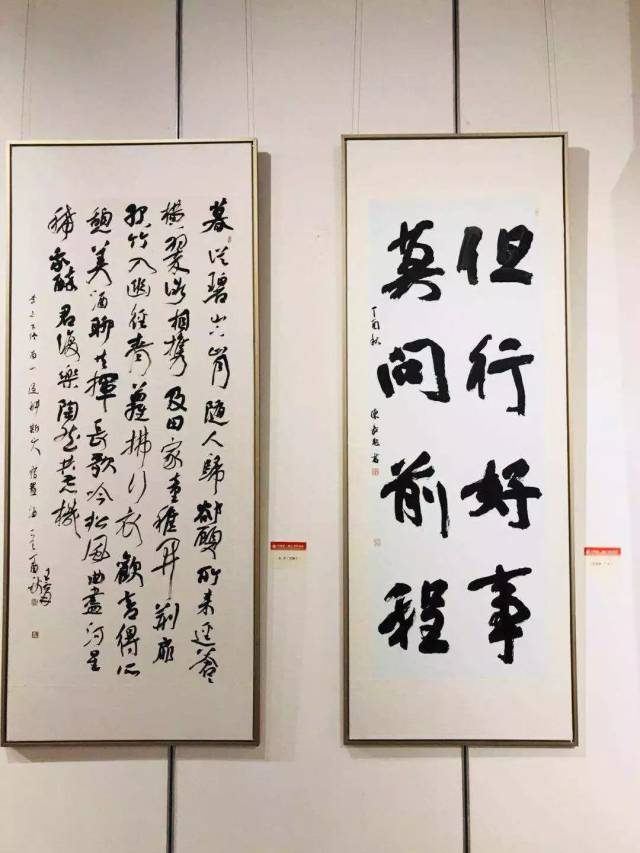 暮從碧山下山月隨人歸卻顧所來徑蒼々
橫翠微相攜及田家童稚開荊扉
綠竹入幽徑青蘿拂行衣歡言得所
憩美酒聊共揮長歌吟松風曲盡河星
稀我醉君復樂陶然共忘機
但行好事
莫問前程
丁酉秋